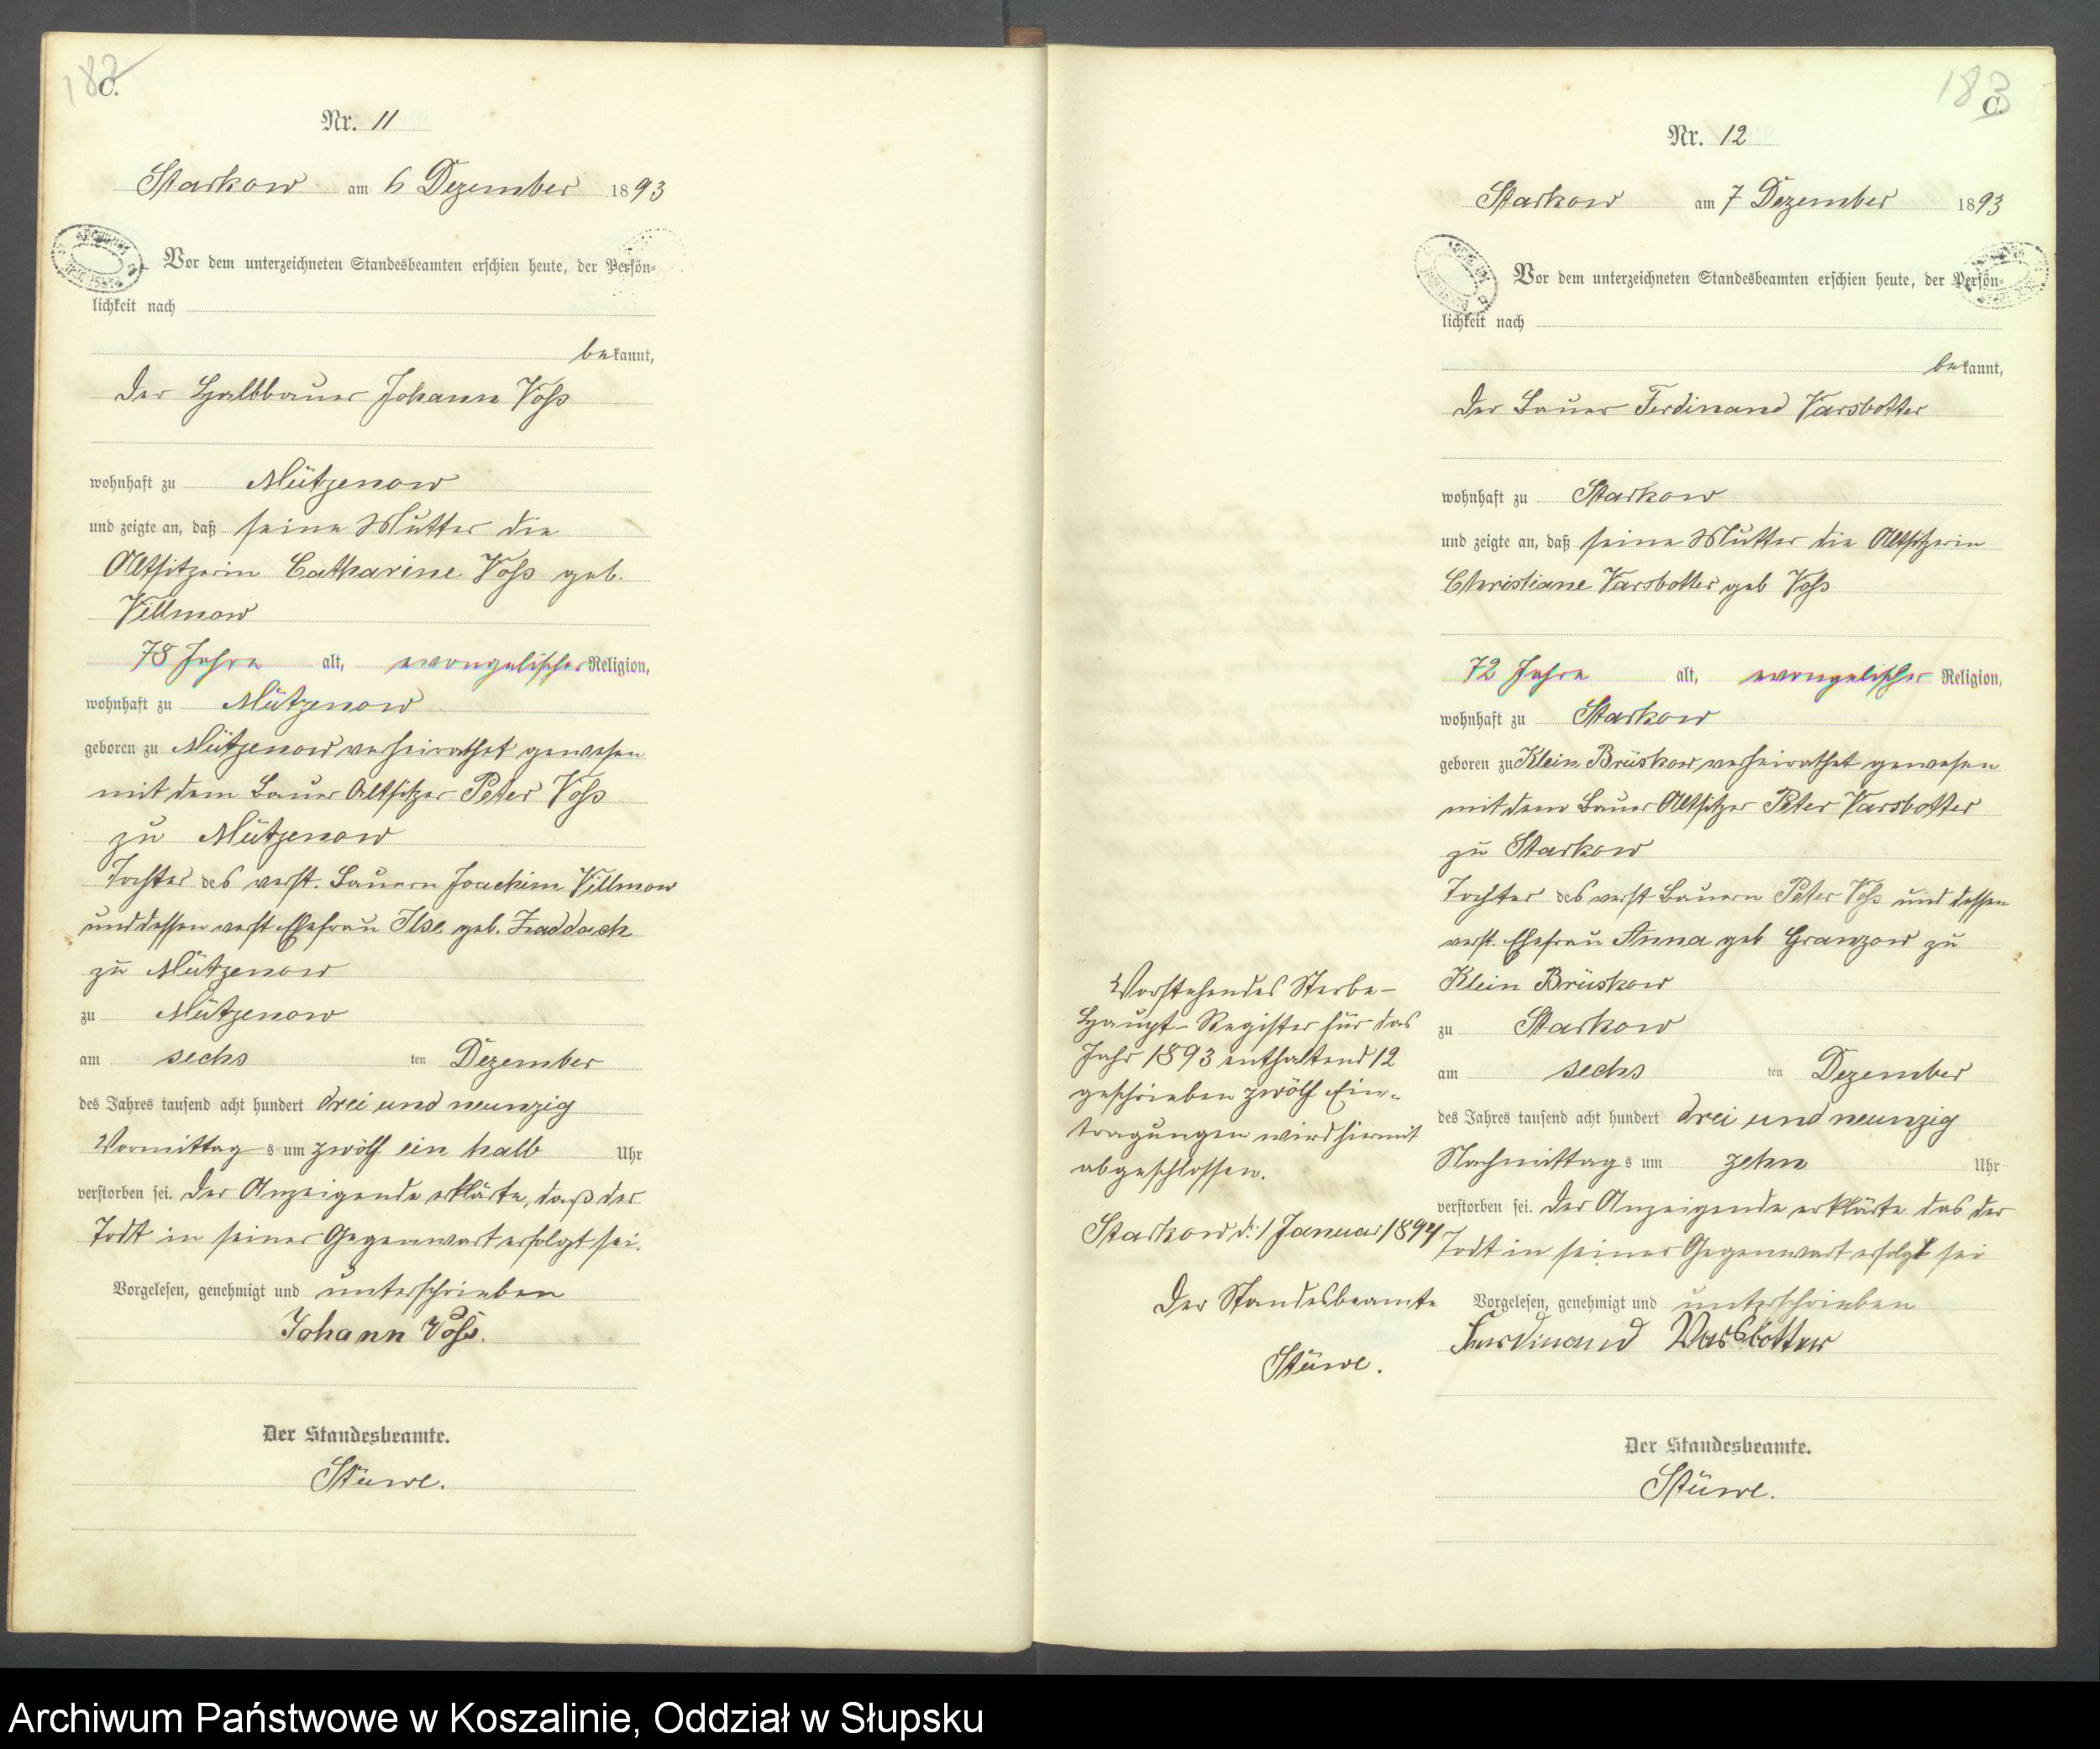 182
C.
Nr. 11
Starkow am 6 Dezember 1893
Vor dem unterzeichneten Standesbeamten erschien heute, der Persön-
lichkeit nach
bekannt,
der Halbbauer Johann Voß
wohnhaft zu Mützenow
und zeigte an, daß seine Mutter die
Altsitzerin Catharine Voß geb.
Villmow
78 Jahre alt, evangelischer Religion,
wohnhaft zu Mützenow
geboren zu Mützenow verheirathet gewesen
mit dem Bauer Altsitzer Peter Voß
zu Mützenow
Tochter des verst. Bauern Joachim Villmow
und dessen verst Ehefrau Ilse geb. Zaddach
zu Mützenow
zu Mützenow
am sechs ten Dezember
des Jahres tausend acht hundert drei und neunzig
Vormittag s um zwölf ein halb Uhr
verstorben sei. Der Anzeigende erklärte, daß der
Todt in seiner Gegenwart erfolgt sei.
Vorgelesen, genehmigt und unterschrieben
Johann Voß.
Der Standesbeamte.
Stüwe.
183
C.
Nr. 12
Starkow am 7 Dezember 1893
Vor dem unterzeichneten Standesbeamten erschien heute, der Persön-
lichkeit nach
bekannt,
der Bauer Ferdinand Varsbotter
wohnhaft zu Starkow
und zeigte an, daß seine Mutter die Altsitzerin
Christiane Varsbotter geb Voß
72 Jahre alt, evangelischer Religion,
wohnhaft zu Starkow
geboren zu Klein Brüskow verheirathet gewesen
mit dem Bauer Altsitzer Peter Varsbotter
zu Starkow
Tochter des verst Bauern Peter Voß und dessen
verst. Ehefrau Anna geb Granzow zu
Klein Brüskow
zu Starkow
am sechs ten Dezember
des Jahres tausend acht hundert drei und neunzig
Nachmittag s um zehn Uhr
verstorben sei. Der Anzeigende erklärte das der
Todt in seiner Gegenwart erfolgt sei
Vorgelesen, genehmigt und unterschrieben
Ferdinand Varsbotter
Der Standesbeamte.
Stüwe.
Vorstehendes Sterbe-
Haupt-Register für das
Jahr 1893 enthaltend 12
geschrieben zwölf Ein-
tragungen wird hiermit
abgeschlossen.
Starkow d. 1 Januar 1894
Der Standesbeamte
Stüwe.
Archiwum Państwowe w Koszalinie, Oddział w Słupsku